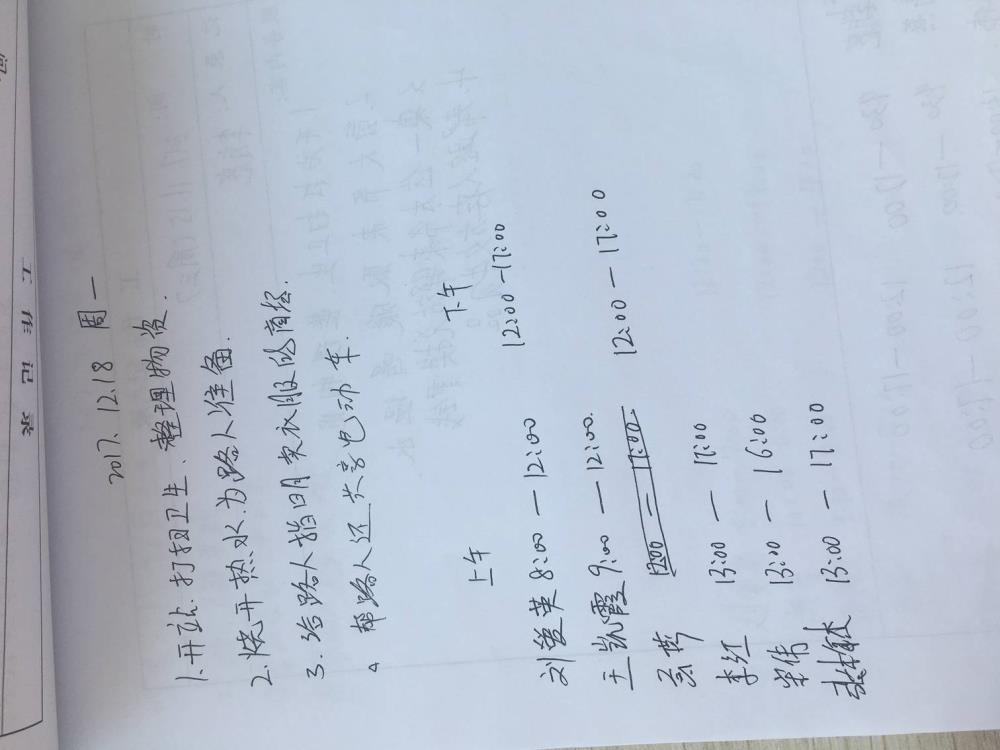 工作记录
2017.12.18 周一
1.开站.打扫卫生.整理物资.
2.烧开热水.为路人准备.
3.给路人指明买衣服的商场.
4 帮路人还共享电动车.
上午 下午
刘爱英 8:00 — 12:00 12:00 — 17:00
王凯霞 9:00 — 12:00. 12:00 — 17:00
13:00 — 17:00
李红 13:00 — 16:00
13:00 — 17:00